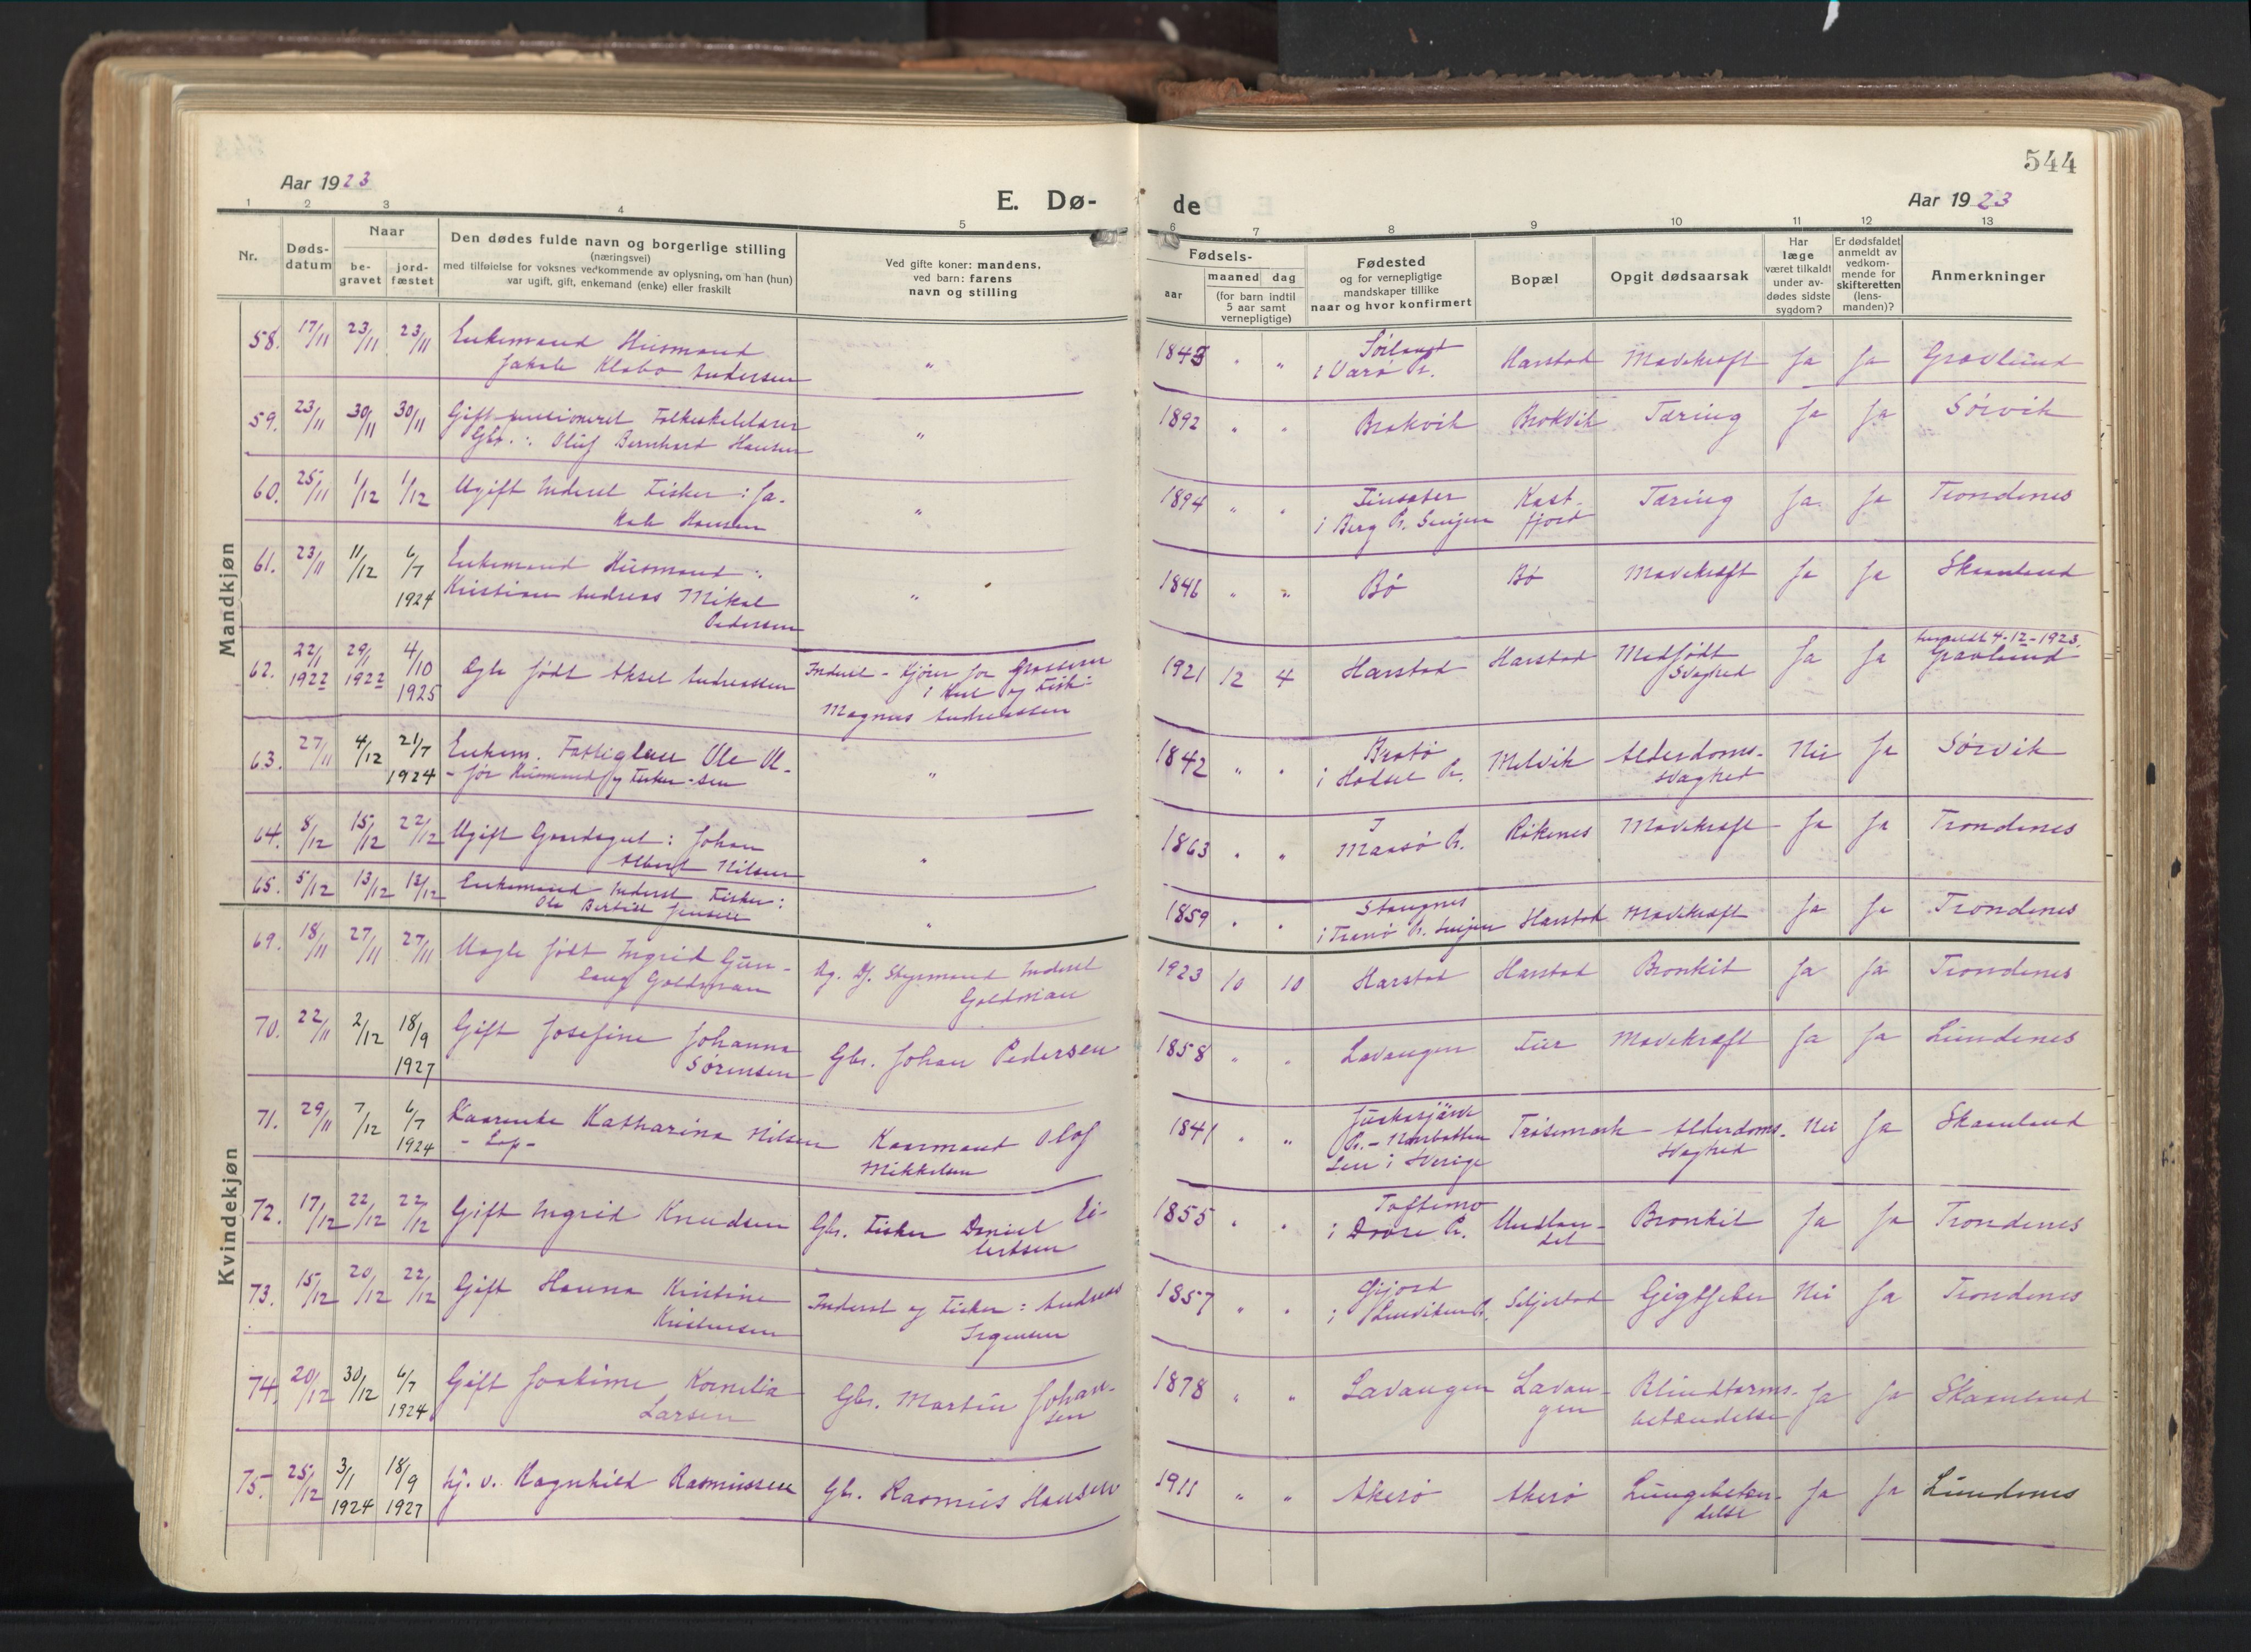 544
Aar 1923
E. Dø-
de
Aar 1923
1 2 3 4 5 6 7 8 9 10 11 12 13
Nr.
Døds-
datum
Naar
be-
gravet
jord-
fæstet
Den dødes fulde navn og borgerlige stilling
(næringsvei)
med tilføielse for voksnes vedkommende av oplysning, om han (hun)
var ugift, gift, enkemand (enke) eller fraskilt
Ved gifte koner: mandens,
ved barn: farens
navn og stilling
Fødsels-
aar
maaned dag
(for barn indtil
5 aar samt
vernepligtige)
Fødested
og for vernepligtige
mandskaper tillike
naar og hvor konfirmert
Bopæl
Opgit dødsaarsak
Har
læge
været tilkaldt
under av-
dødes sidste
sygdom?
Er dødsfaldet
anmeldt av
vedkom-
mende for
skifteretten
(lens-
manden)?
Anmerkninger
Mandkjøn
58. 17/11 23/11 23/11 Enkemand Husmand
Jakob Klabo Andersen
" 1843 " "
i Værø Pr.
Harstad Mavekræft Ja Ja Gravlund
59. 23/11 30/11 30/11 Gift pensioneret Folkeskolelærer
Gbr.: Oluf Bernhard Hansen
" 1892 " " Brokvik Brokvik Tæring Ja Ja Sørvik
60. 25/11 1/12 1/12 Ugift Inderst Fisker: Ja-
kob Hansen
" 1894 " " Finsæter
i Berg Pr. Senjen
Kast-
fjord
Tæring Ja Ja Trondenes
61. 23/11 11/12 6/7
1924
Enkemand Husmand:
Kristian Andreas Mikal
Pedersen
" 1846 " " Bø Bø Mavekræft Ja Ja Skaanland
62. 22/1
1922
29/1
1922
4/10
1925
Ægte født Aksel Andreassen
Inderst - Kjører for Grosserer
i Kul og Fisk:
Magnus Andreassen
1921 12 4 Harstad Harstad Medfødt
Svaghed
Ja Ja
anmeldt 4-12-1923.
Gravlund
63. 27/11 4/12 21/7
1924
Enkem. Fattiglem Ole Ol-
- før Husmand og Fisker - sen
" 1842 " "
i Hadsel Pr.
Melvik Alderdoms-
svaghed
Nei Ja Sørvik
64. 8/12 15/12 22/12 Ugift Gaardsgut: Johan
Albert Nilsen
" 1863 " " I
Maasø Pr.
Røkenes Mavekræft Ja Ja Trondenes
65. 5/12 13/12 13/12 Enkemand Inderst Fisker:
Ole Bertill Jensen
" 1859 " " Stangnes
i Tranø Pr. Senjen
Harstad Mavekræft Ja Ja Trondenes
Kvindekjøn
69. 18/11 27/11 27/11 Uægte født Ingrid Gun-
laug Goldman
Ug. Df. Styrmand Inderst
Goldman
1923 10 10 Harstad Harstad Bronkit Ja Ja Trondenes
70. 22/11 2/12 18/9
1927
Gift Josefine Johanna
Sørensen
Gbr. Johan Pedersen
1858 " " Lavangen Mavekræft Ja Ja Lundenes
71. 29/11 7/12 6/7
1924
Kaarenke Katharina Nilsen
- Lap -
Kaarmand Olof
Mikkelsen
1841 " " Juckasjärvi
Pr. - Norrbotten
Len i Sverige
Trøsemark Alderdoms-
svaghed
Nei Ja Skaanland
72. 17/12 22/12 22/12 Gift Ingrid Knudsen
Gbr. Fisker Daniel Ei-
lertsen
1855 " " Toftemo
i Dovre Pr.
Undlan-
det
Bronkit Ja Ja Trondenes
73. 15/12 20/12 22/12 Gift Hanna Kristine
Kristensen
Inderst og Fisker: Andreas
Ingensen
1857 " " Gifjord
i Lenviken Pr.
Seljestad Gigtfeber Nei Ja Trondenes
74. 20/12 30/12 6/7
1924
Gift Joakime Kornelia
Larsen
Gbr. Martin Johan-
sen
1878 " " Lavangen Lavan-
gen
Blindtarms-
betændelse
Ja Ja Skaanland
75. 25/12 3/1
1924
18/9
1927
hj. v. Ragnhild Rasmussen
Gbr. Rasmus Hansen
1911 " " Akerø Akerø Lungebetæn-
delse
Ja Ja Lundenes